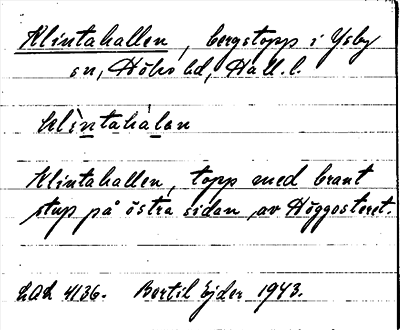 Klintahallen, bergstopp i Ysby
sn, Höks hd, Hall. l.
klìntahàlen
Klintahallen, topp med brant
stup på östra sidan, av Höggosteret.
LAL 4136. Bertil Ejder 1943.